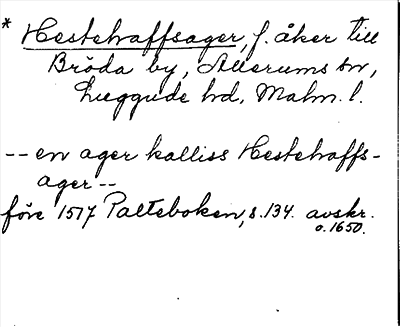 * Hestehaffsager, f. åker till
Bröda by, Allerums sn,
Luggude hd, Malm. l.
-- en ager kalliss Hestehaffs-
ager --
före 1517 Palteboken, s. 134. avskr.
o. 1650.